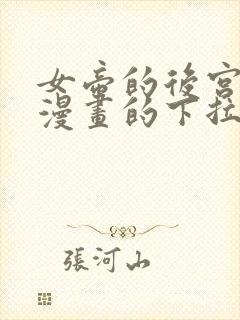 女帝的後宮
漫畫的下拉
張河山